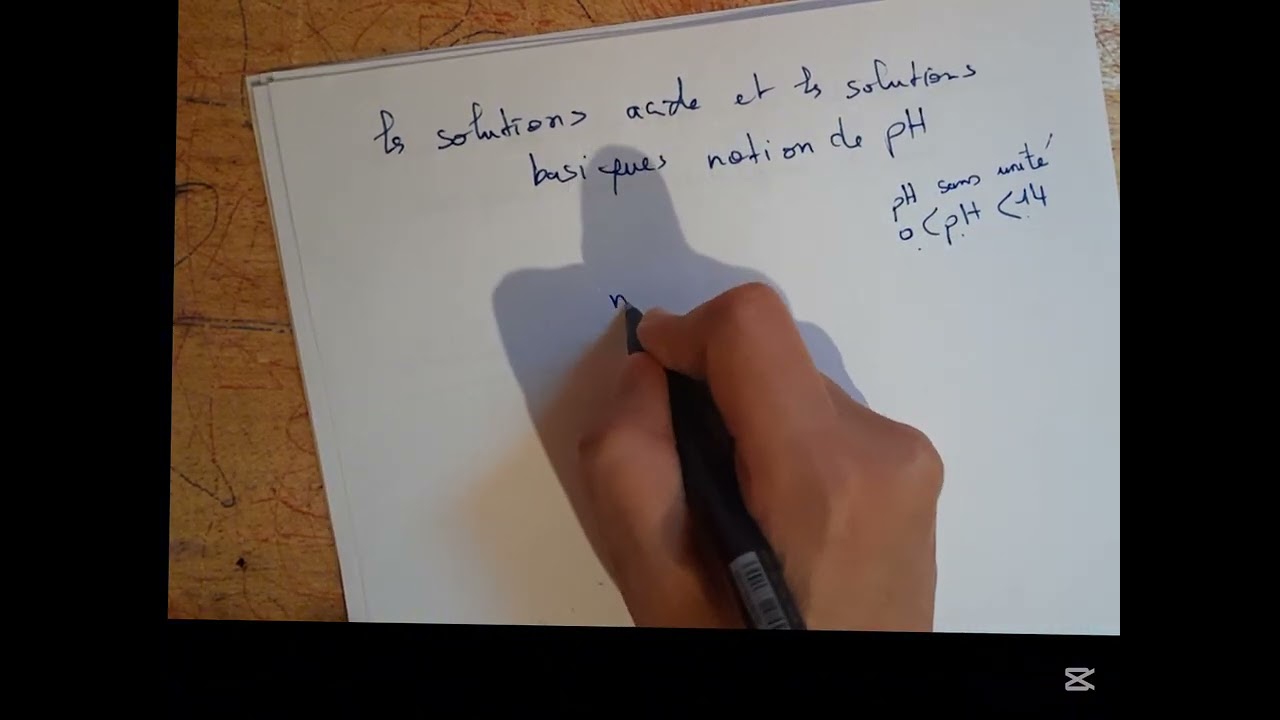 ls solutions acide et ls solutions
basiques notion de pH
pH sans unité
0 < pH < 14
n